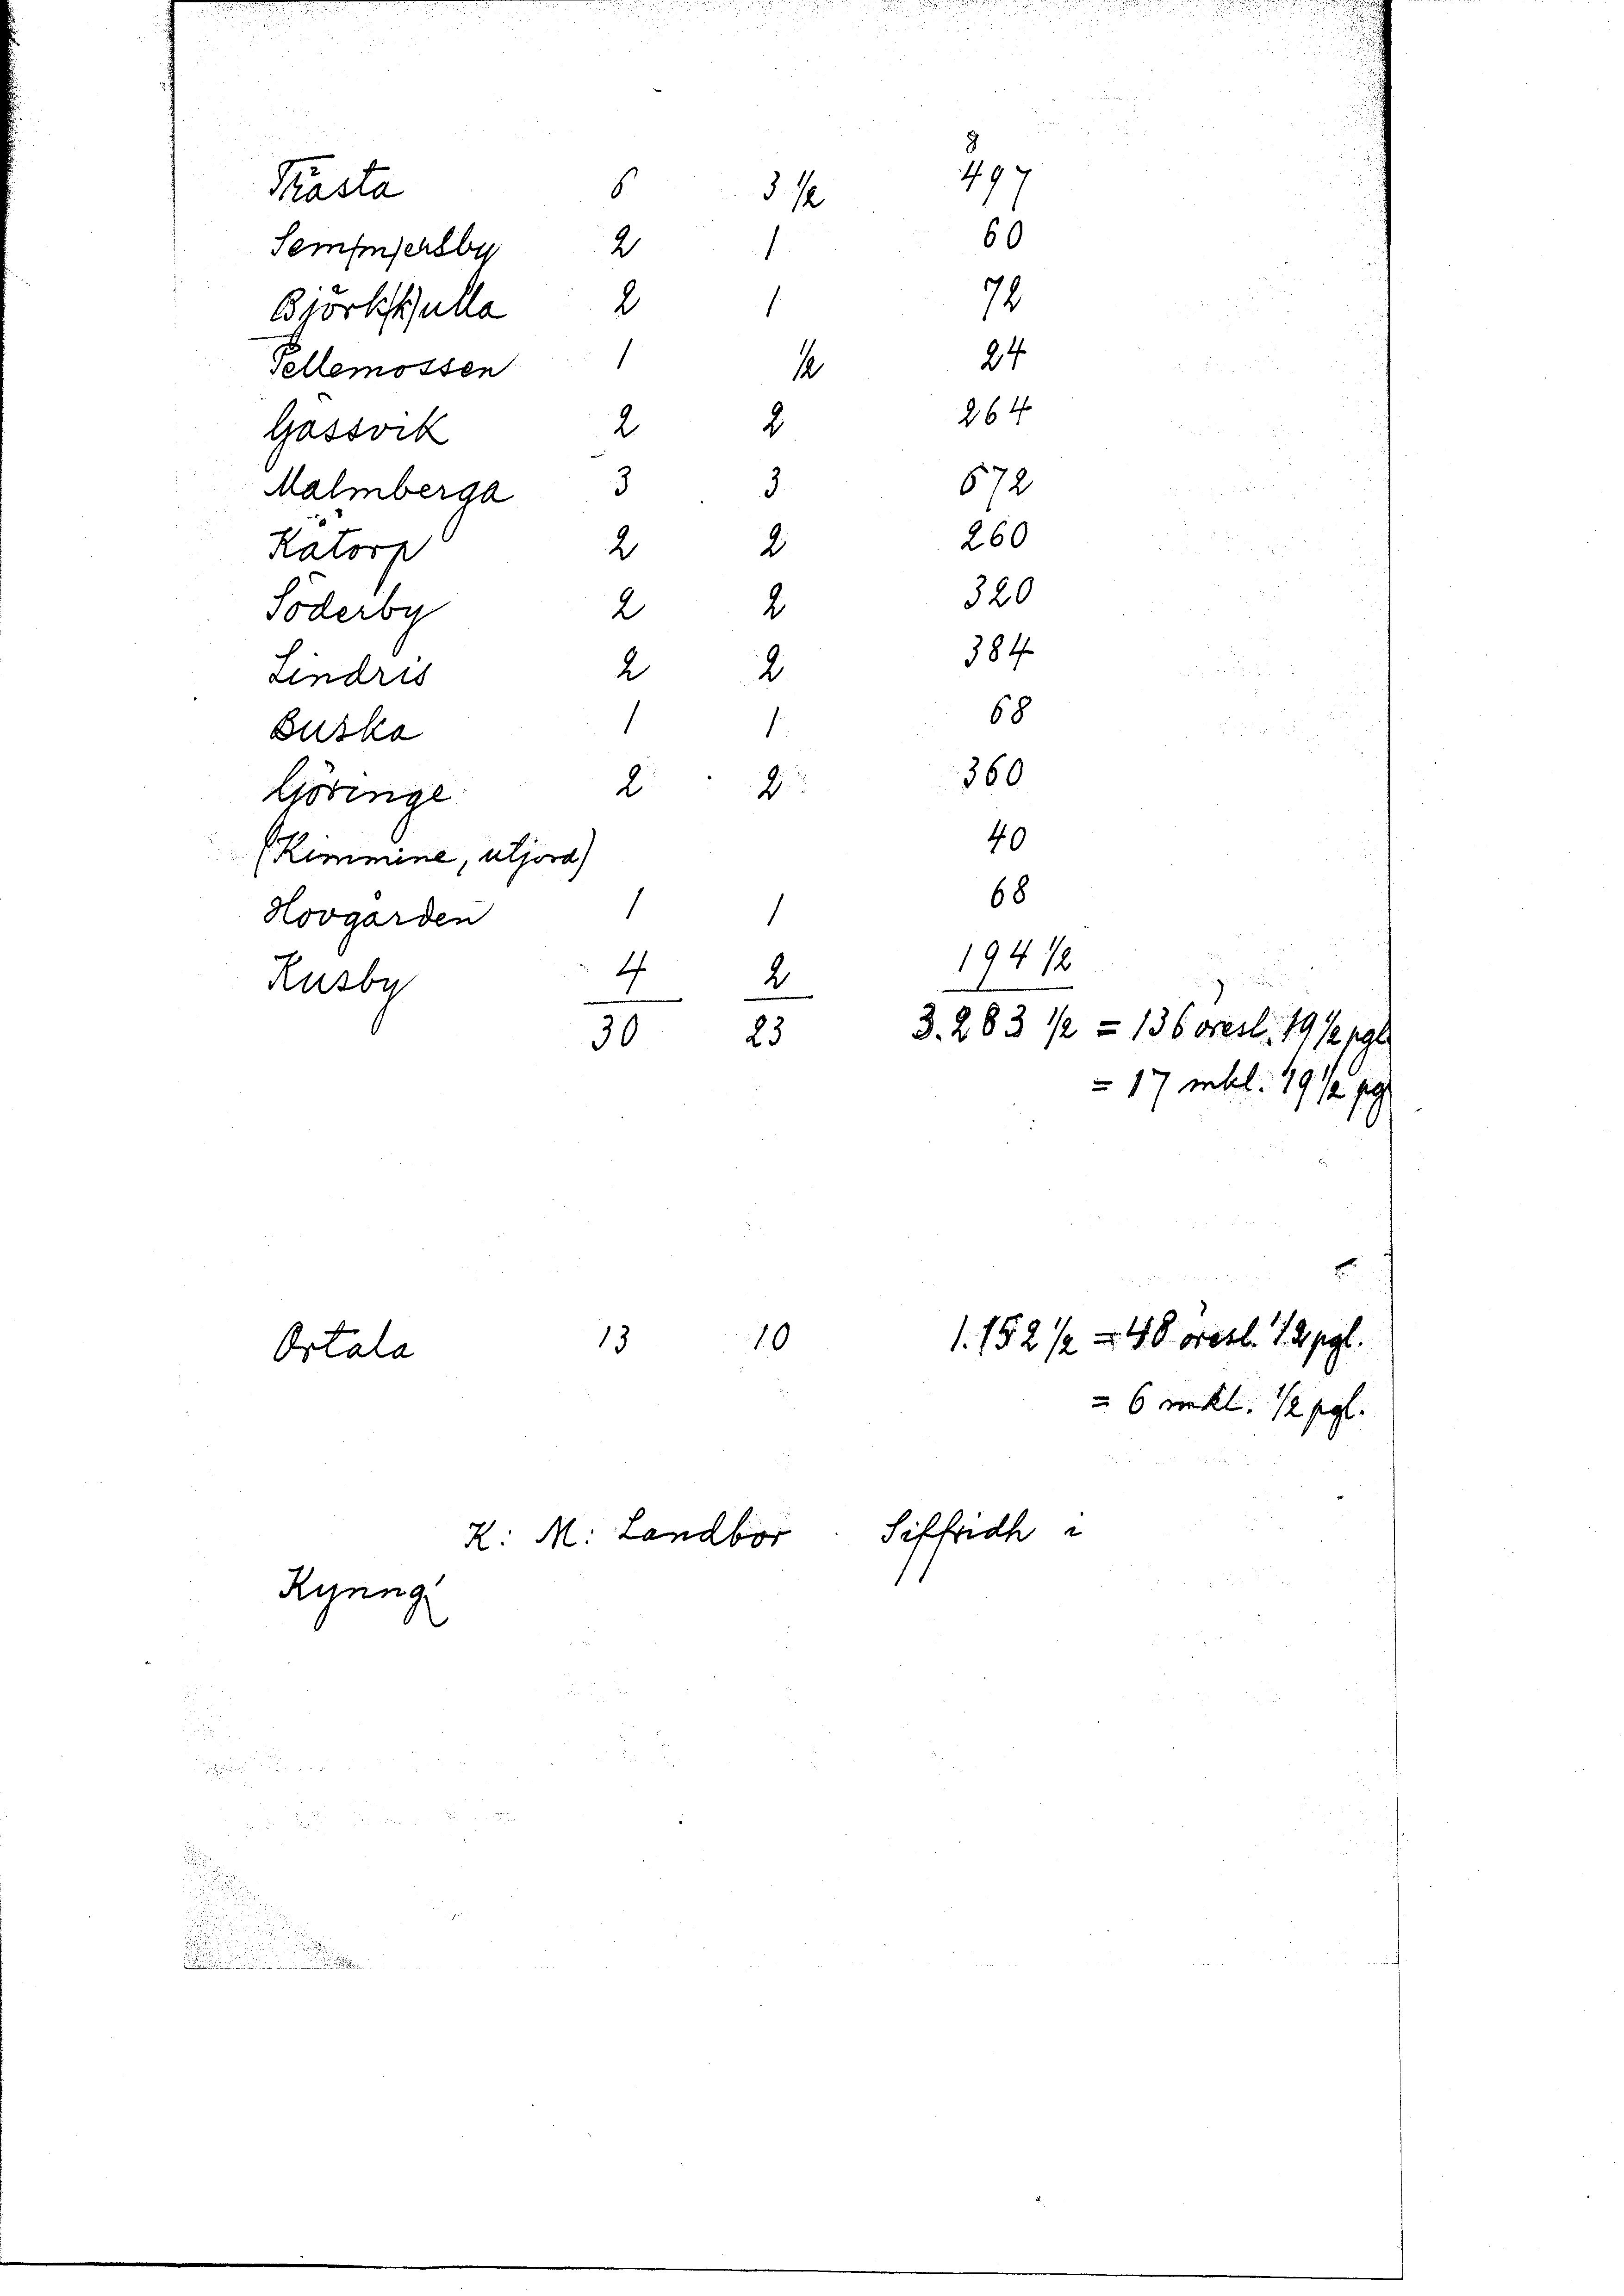 8
Trästa 6 3 ½ 497
Sem(m)ersby 2 1 60
Björk(k)ulla 2 1 72
Pellemossen 1 ½ 24
Gåssvik 2 2 264
Malmberga 3 3 672
Kåtorp 2 2 260
Söderby 2 2 320
Lindris 2 2 384
Buska 1 1 68
Göringe 2 2 360
(Kimmine, utjord) 40
Hovgården 1 1 68
Kusby 4 2 194 ½
30 23 3.283 ½ = 136 öresl. 19 ½ pgl
= 17 mkl. 19 ½ pg
Ortala 13 10 1.152 ½ = 48 öresl. ½ pgl.
= 6 mkl. ½ pgl.
K: M: Landbor Siffridh i
Kynng